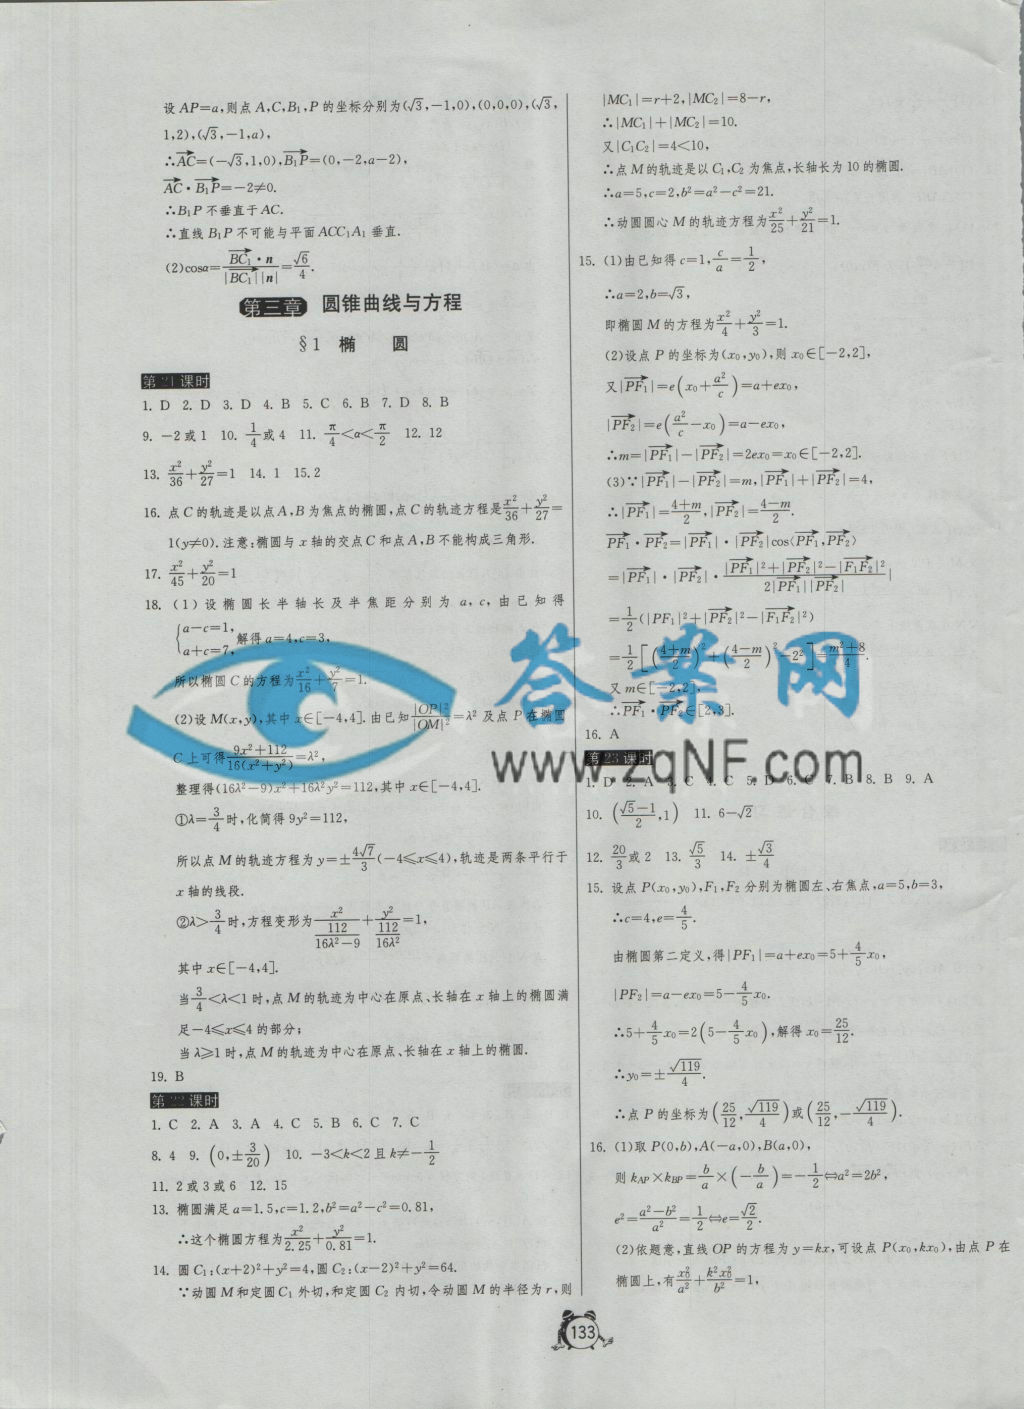 设AP=a,则点A,C,B₁,P的坐标分别为(√3,-1,0),(0,0,0),(√3,
1,2),(√3,-1,a),
∴AC→=(-√3,1,0),B₁P→=(0,-2,a-2),
AC→·B₁P→=-2≠0.
∴B₁P不垂直于AC.
∴直线B₁P不可能与平面ACC₁A₁垂直.
(2)cosα=BC₁→·n/(|BC₁→||n|)=√6/4.
第三章 圆锥曲线与方程
§1 椭 圆
第21课时
1. D 2. D 3. D 4. B 5. C 6. B 7. D 8. B
9. -2或1 10. 1/4或4 11. π/4<α<π/2 12. 12
13. x²/36+y²/27=1 14. 1 15. 2
16. 点C的轨迹是以点A,B为焦点的椭圆,点C的轨迹方程是x²/36+y²/27=
1(y≠0).注意:椭圆与x轴的交点C和点A,B不能构成三角形.
17. x²/45+y²/20=1
18. (1)设椭圆长半轴长及半焦距分别为a,c,由已知得
{a-c=1, a+c=7, 解得a=4,c=3,
所以椭圆C的方程为x²/16+y²/7=1.
(2)设M(x,y),其中x∈[-4,4].由已知|OP|²/|OM|²=λ²及点P在椭圆
C上可得(9x²+112)/(16(x²+y²))=λ²,
整理得(16λ²-9)x²+16λ²y²=112,其中x∈[-4,4].
①λ=3/4时,化简得9y²=112,
所以点M的轨迹方程为y=±4√7/3(-4≤x≤4),轨迹是两条平行于
x轴的线段.
②λ>3/4时,方程变形为x²/(112/(16λ²-9))+y²/(112/(16λ²))=1,
其中x∈[-4,4].
当3/4<λ<1时,点M的轨迹为中心在原点、长轴在x轴上的椭圆满
足-4≤x≤4的部分;
当λ≥1时,点M的轨迹为中心在原点、长轴在x轴上的椭圆.
19. B
第22课时
1. C 2. A 3. A 4. C 5. B 6. C 7. C
8. 4 9. (0,±3/20) 10. -3<k<2且k≠-1/2
11. 2或3或6 12. 15
13. 椭圆满足a=1.5,c=1.2,b²=a²-c²=0.81,
∴这个椭圆方程为x²/2.25+y²/0.81=1.
14. 圆C₁:(x+2)²+y²=4,圆C₂:(x-2)²+y²=64.
∵动圆M和定圆C₁外切,和定圆C₂内切,令动圆M的半径为r,则
|MC₁|=r+2,|MC₂|=8-r,
∴|MC₁|+|MC₂|=10.
又|C₁C₂|=4<10,
∴点M的轨迹是以C₁,C₂为焦点,长轴长为10的椭圆.
∴a=5,c=2,b²=a²-c²=21.
∴动圆圆心M的轨迹方程为x²/25+y²/21=1.
15. (1)由已知得c=1,c/a=1/2,
∴a=2,b=√3,
即椭圆M的方程为x²/4+y²/3=1.
(2)设点P的坐标为(x₀,y₀),则x₀∈[-2,2],
又|PF₁→|=e(x₀+a²/c)=a+ex₀,
|PF₂→|=e(a²/c-x₀)=a-ex₀,
∴m=|PF₁→|-|PF₂→|=2ex₀=x₀∈[-2,2].
(3)∵|PF₁→|-|PF₂→|=m,|PF₁→|+|PF₂→|=4,
∴|PF₁→|=(4+m)/2,|PF₂→|=(4-m)/2.
PF₁→·PF₂→=|PF₁→|·|PF₂→|cos⟨PF₁→,PF₂→⟩
=|PF₁→|·|PF₂→|·(|PF₁→|²+|PF₂→|²-|F₁F₂→|²)/(2|PF₁→||PF₂→|)|
=1/2(|PF₁|²+|PF₂→|²-|F₁F₂→|²)
=1/2[((4+m)/2)²+((4-m)/2)²-2²]=(m²+8)/4.
又m∈[-2,2],
∴PF₁→·PF₂→∈[2,3].
16. A
第23课时
1. D 2. A 3. C 4. C 5. D 6. C 7. B 8. B 9. A
10. ((√5-1)/2,1) 11. 6-√2
12. 20/3或2 13. √5/3 14. ±√3/4
15. 设点P(x₀,y₀),F₁,F₂分别为椭圆左、右焦点,a=5,b=3,
∴c=4,e=4/5.
由椭圆第二定义,得|PF₁|=a+ex₀=5+4/5x₀,
|PF₂|=a-ex₀=5-4/5x₀.
∴5+4/5x₀=2(5-4/5x₀),解得x₀=25/12.
∴y₀=±√119/4.
∴点P的坐标为(25/12,√119/4)或(25/12,-√119/4).
16. (1)取P(0,b),A(-a,0),B(a,0),
则k_AP×k_BP=b/a×(-b/a)=-1/2⇔a²=2b²,
e²=(a²-b²)/a²=1/2⇔e=√2/2.
(2)依题意,直线OP的方程为y=kx,可设点P(x₀,kx₀),由点P在
椭圆上,有x₀²/a²+k²x₀²/b²=1,
答案网
www.zqNF.com
133